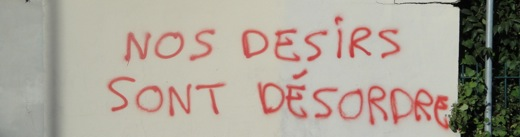 NOS DESIRS
SONT DÉSORDRE